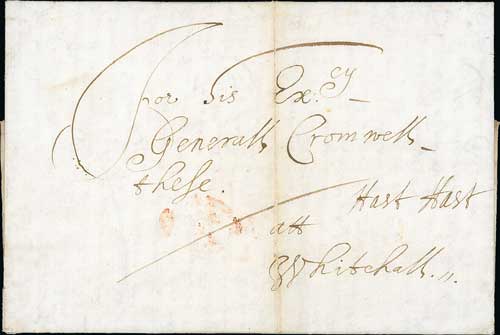 For his Ex:cy
Generall Cromwell
these.
Hast Hast
att
Whitehall.,,